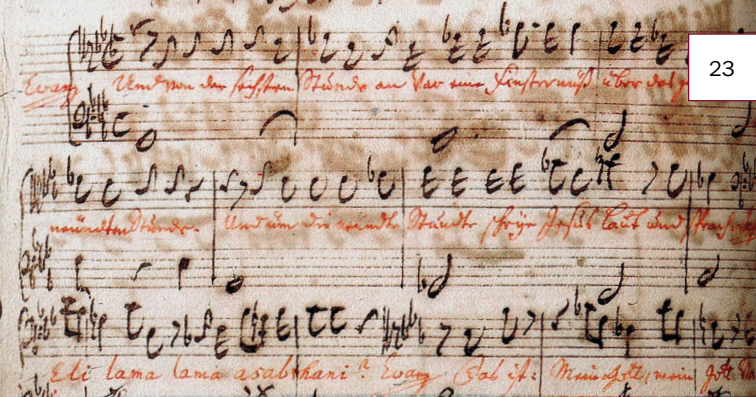 23
Evang Und von der sechsten Stunde an war eine Finsternüß über das
neundten Stunde. Und um die neundte Stunde schrye Jesus laut und sprach
Eli lama lama asabthani? Evang Das ist: Mein Gott, mein Gott